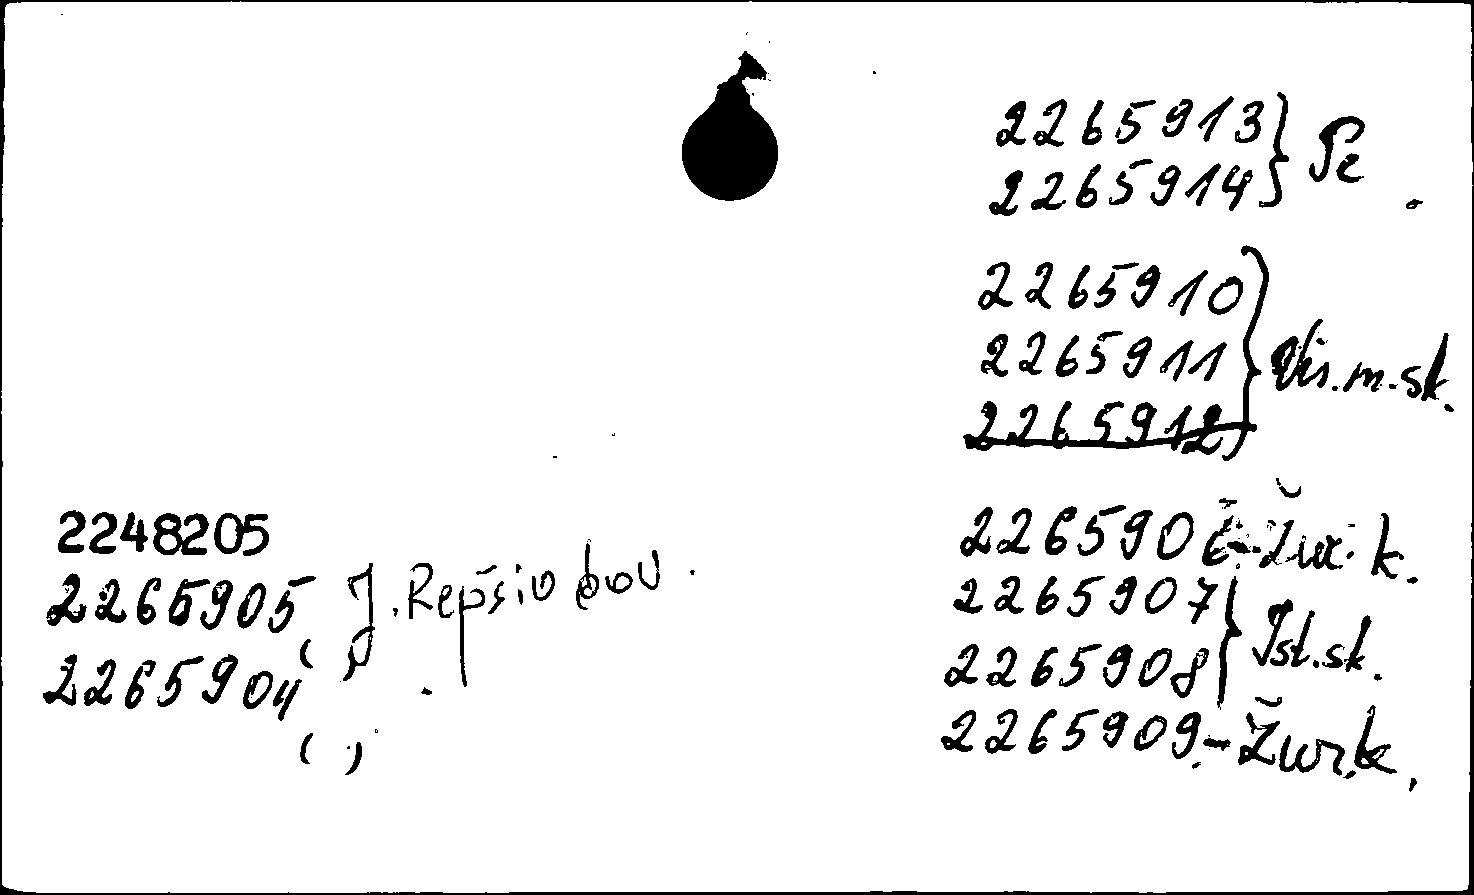 2265913 } Pe
2265914
2265910
2265911 } Vis.m.sk.
2265912
2248205
2265905 J. Repšio
2265904
( )
2265906 - Žur. k.
2265907 } Ist.sk.
2265908
2265909 - Žur.k.